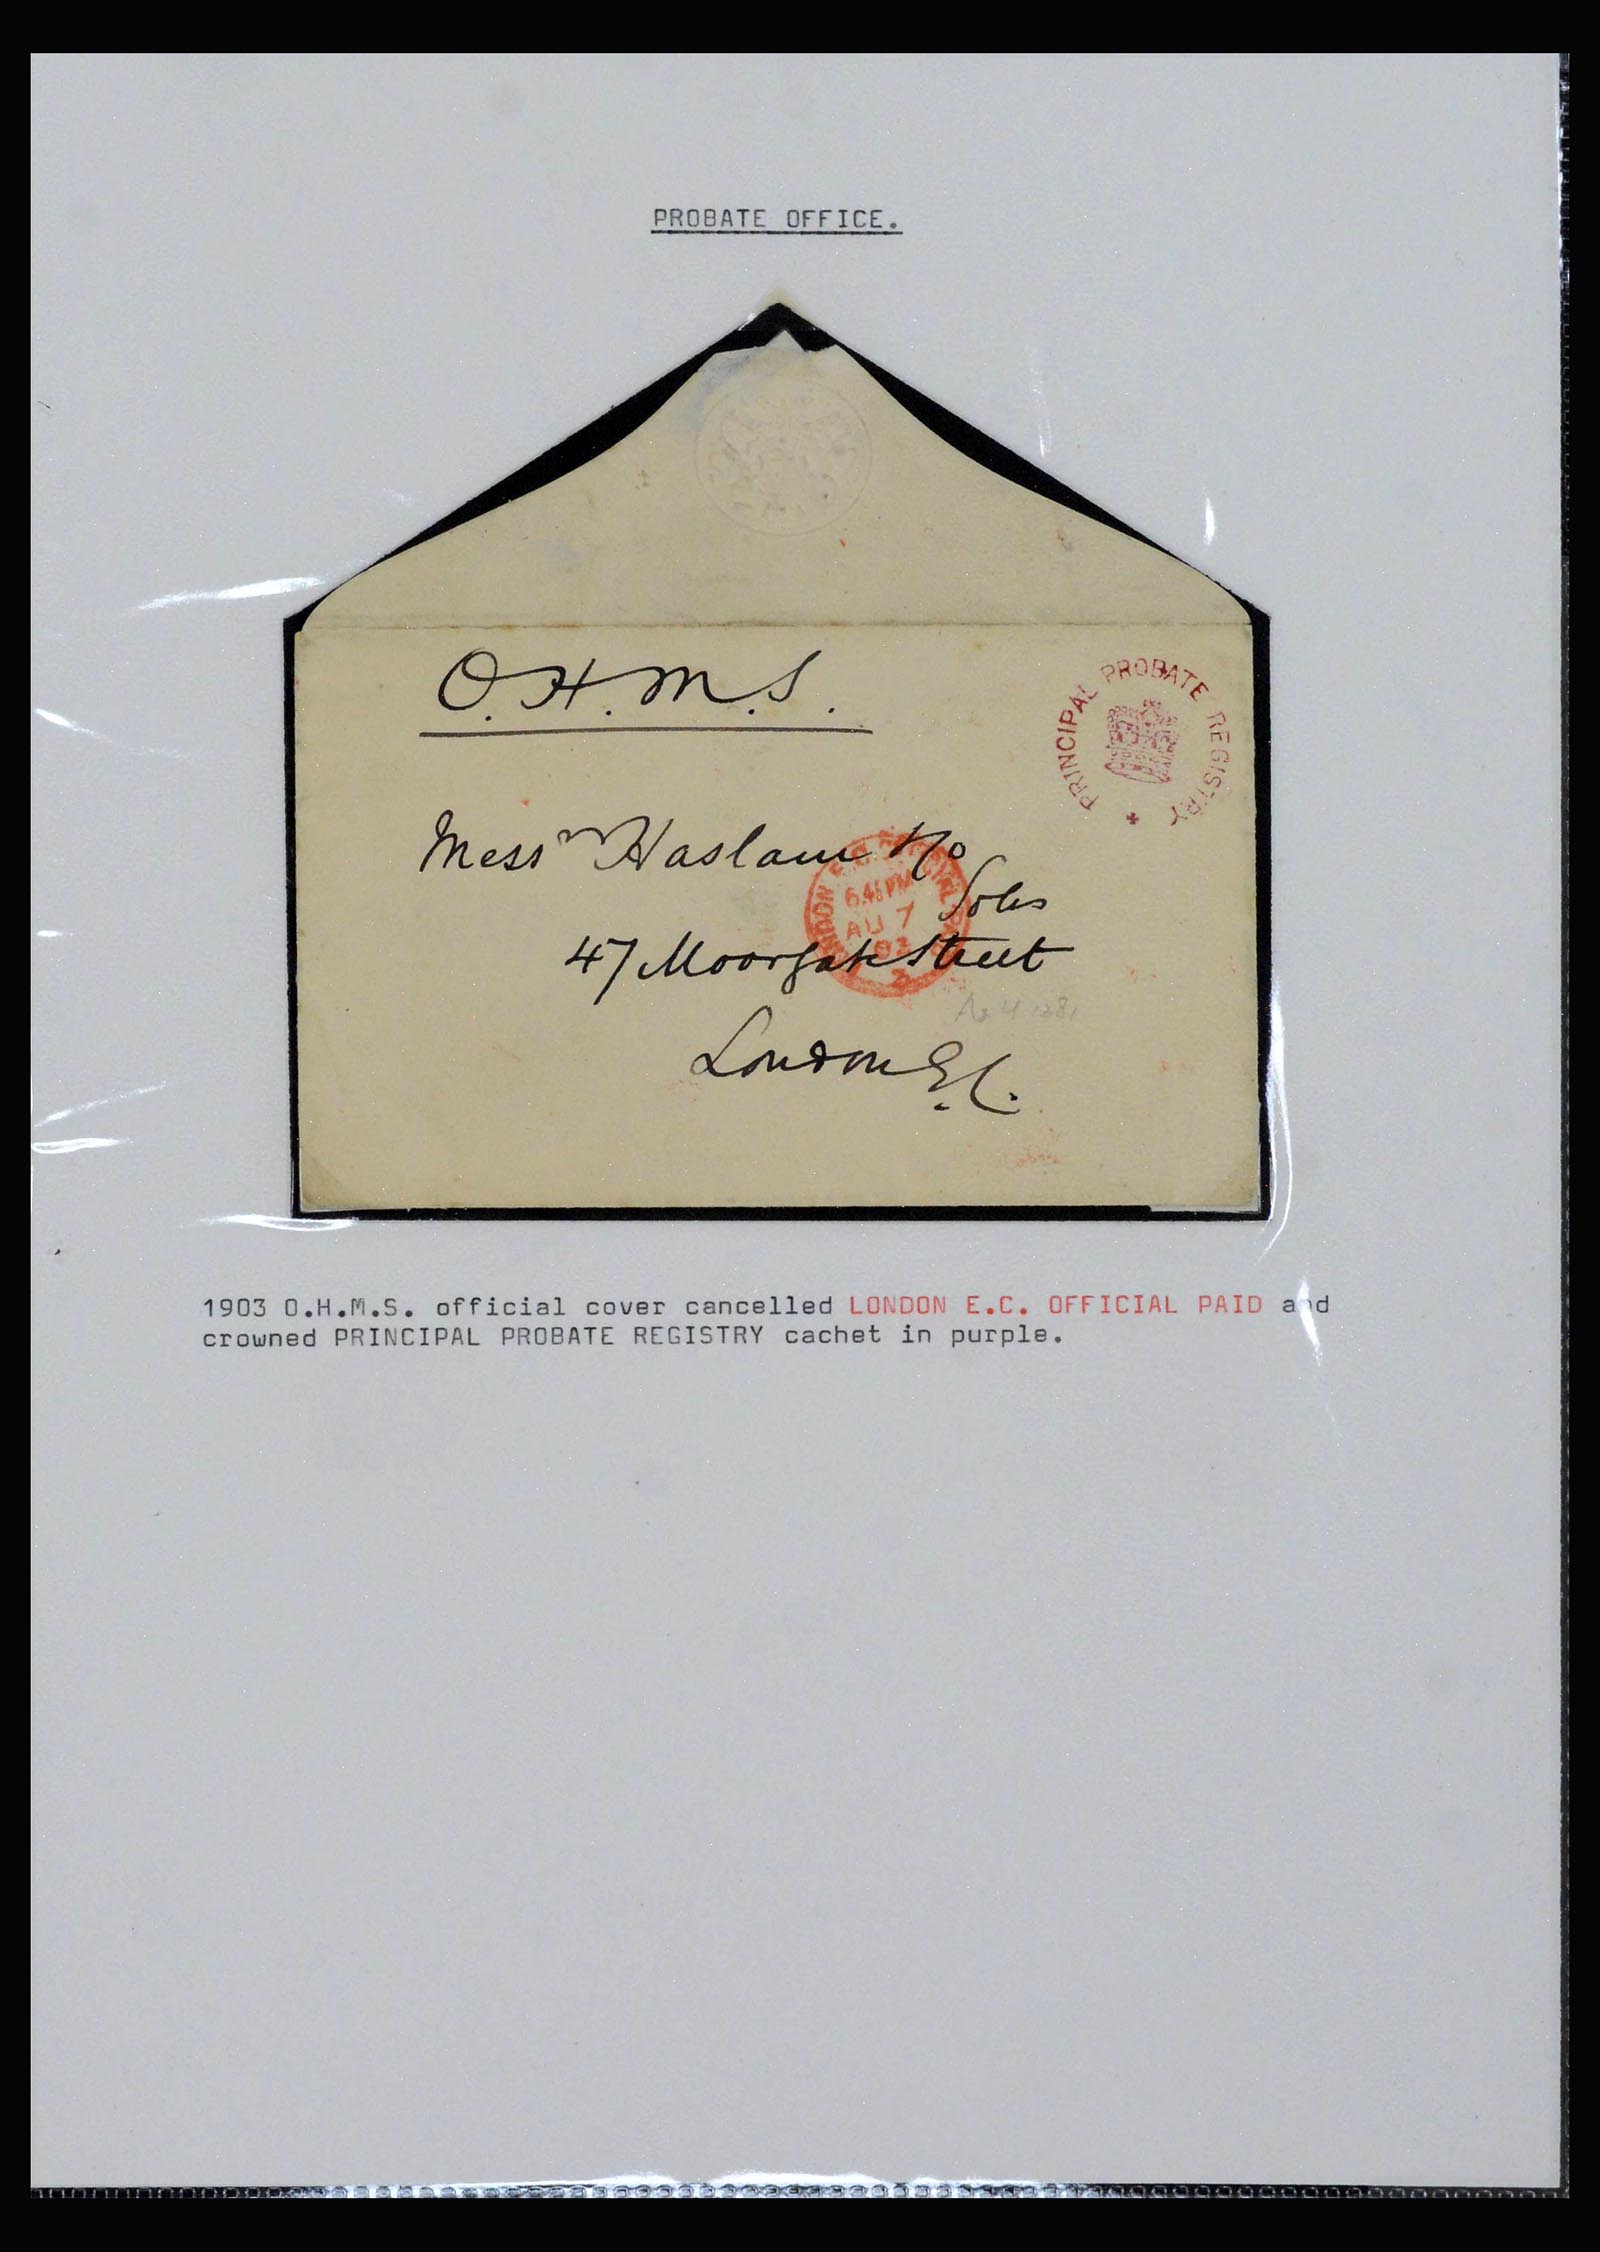 PROBATE OFFICE.
O.H.M.S.
PRINCIPAL PROBATE REGISTRY
Messrs Haslam
Solrs
LONDON E.C. OFFICIAL PAID
6.45 PM
AU 7
03
47 Moorgate Street
London E.C.
1903 O.H.M.S. official cover cancelled LONDON E.C. OFFICIAL PAID and
crowned PRINCIPAL PROBATE REGISTRY cachet in purple.